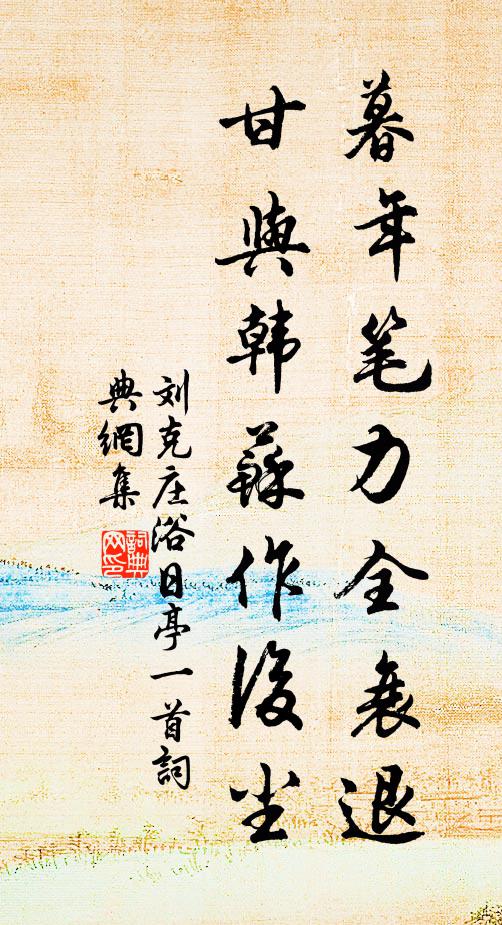 暮年笔力全衰退
甘與韩蘇作後尘
刘克庄浴日亭一首詞
典網集
詞典网印